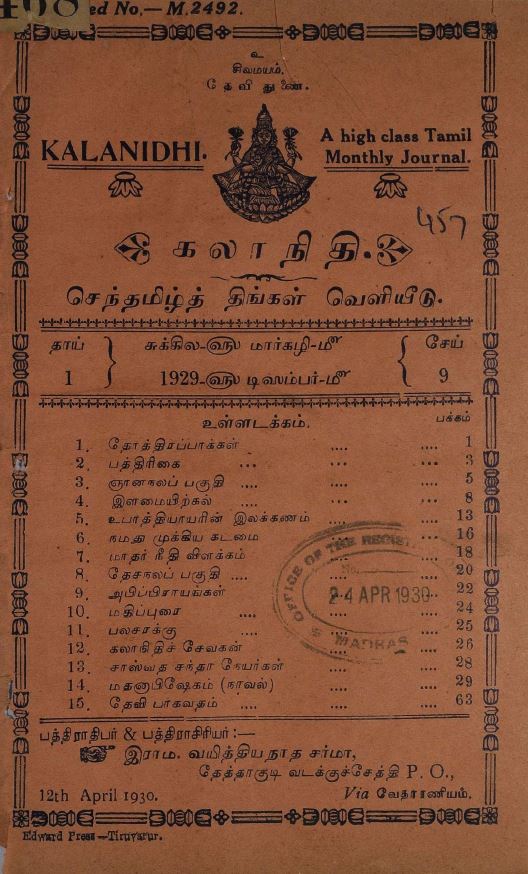 ed No.— M.2492.
உ
சிவமயம்.
தேவி துணை.
KALANIDHI.
A high class Tamil
Monthly Journal.
457
கலாநிதி.
செந்தமிழ்த் திங்கள் வெளியீடு.
தாய்
1
சுக்கில-௵ மார்கழி-௴
1929-௵ டிஸம்பர்-௴
சேய்
9
உள்ளடக்கம்.
பக்கம்
1. தோத்திரப்பாக்கள் .... .... 1
2. பத்திரிகை ... ... 3
3. ஞானநலப் பகுதி .... .... 5
4. இளமையிற்கல் .... ... 8
5. உபாத்தியாயரின் இலக்கணம் .... .... 13
6. நமது முக்கிய கடமை ... 16
7. மாதர் நீதி விளக்கம் 18
8. தேசநலப் பகுதி .... 20
9. அபிப்பிராயங்கள் 22
10. மதிப்புரை .... 24
11. பலசரக்கு .... 25
12. கலாநிதிச் சேவகன் .... 26
13. சாஸ்வத சந்தா நேயர்கள் .... .... 28
14. மதனாபிஷேகம் (நாவல்) .... .... 29
15. தேவி பாகவதம் .... .... .... 63
OFFICE OF THE REGIST
No.
24 APR 1930
MADRAS
பத்திராதிபர் & பத்திராசிரியர் :—
இராம. வயித்தியநாத சர்மா,
தேத்தாகுடி வடக்குச்சேத்தி P. O.,
12th April 1930.
Via வேதாரணியம்.
Edward Press—Tiruvarur.